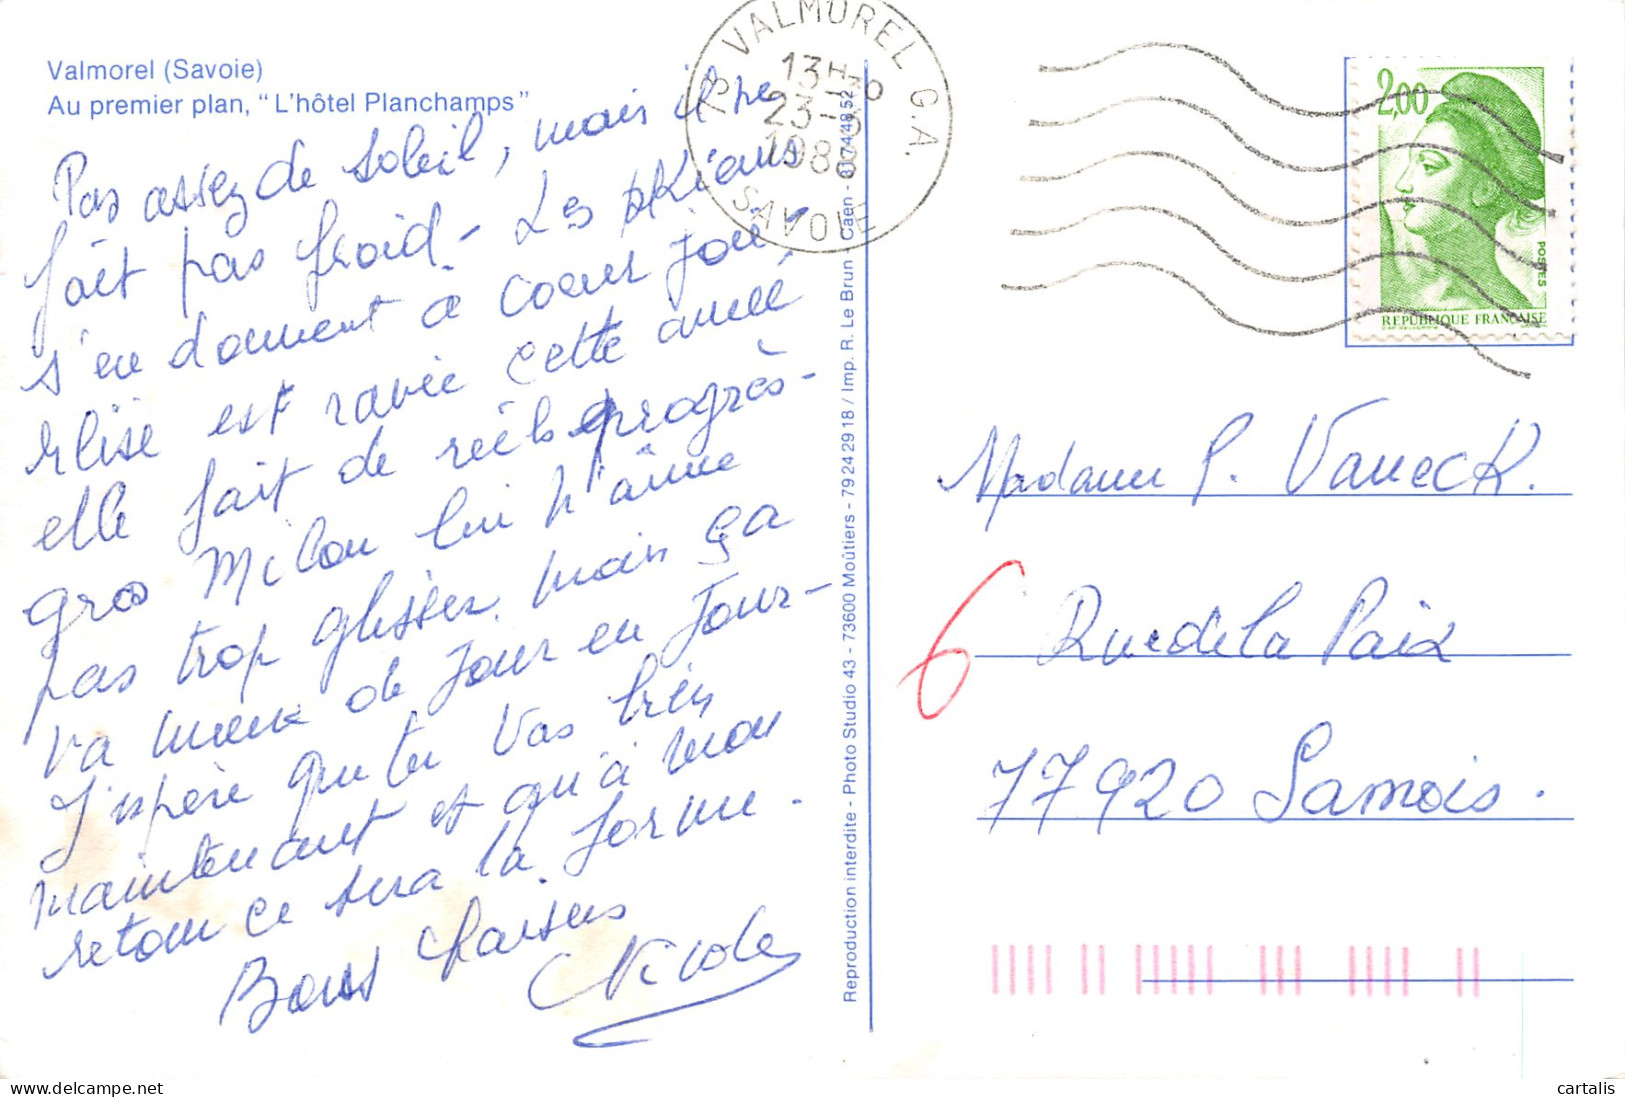 Valmorel (Savoie)
Au premier plan, "L'hôtel Planchamps"
Pas assez de soleil, mais il ne
fait pas froid - Les
s'en donnent à coeur joie
est ravie cette année,
elle fait de réels progrès -
gros Milou lui n'aime
pas trop glisser mais ça
va mieux de jour en jour -
J'espère que tu vas bien
maintenant et qu'à mon
retour ce sera la forme -
Bons baisers
Nicole
Reproduction interdite - Photo Studio 43 - 73600 Moûtiers - 79 24 29 18 / Imp. R. Le Brun Caen - 8174 48 52
73 VALMOREL G.A.
13H30
23-3
1988
SAVOIE
2,00
POSTES
REPUBLIQUE FRANÇAISE
Madame P. Vaneck.
6 Rue de la Paix
77920 Samois.
cartalis